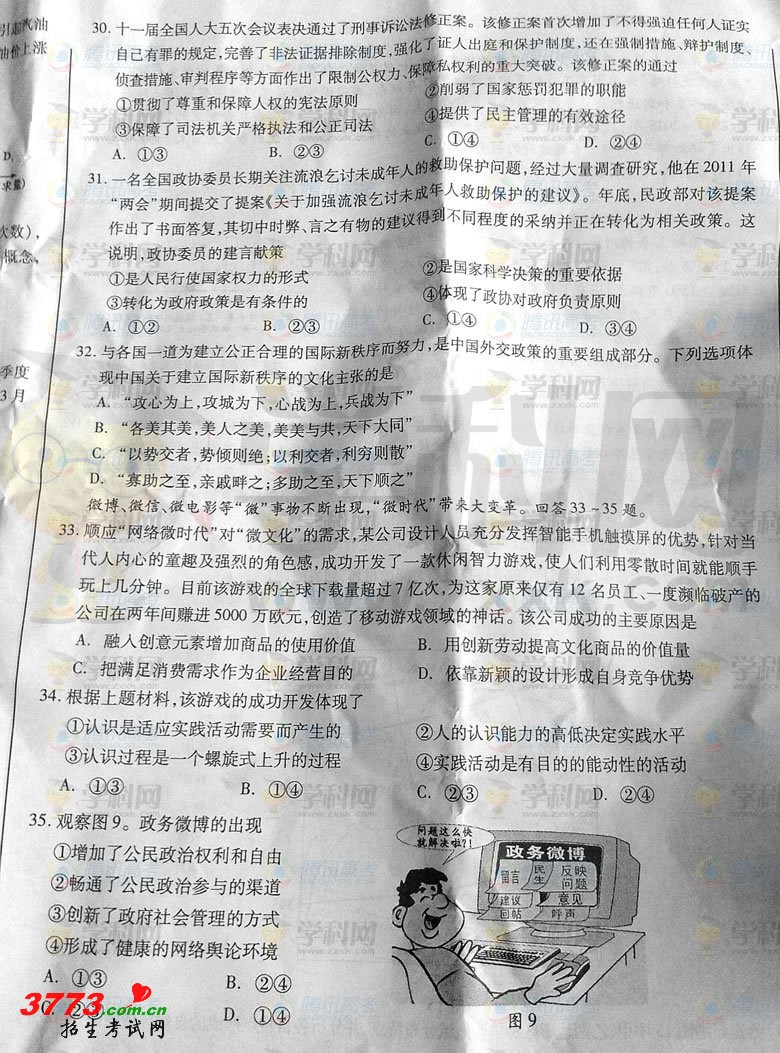 引起汽油
油价上涨
D.
求量)
次数),
概念、
季度
3月
30. 十一届全国人大五次会议表决通过了刑事诉讼法修正案。该修正案首次增加了不得强迫任何人证实
自己有罪的规定,完善了非法证据排除制度,强化了证人出庭和保护制度,还在强制措施、辩护制度、
侦查措施、审判程序等方面作出了限制公权力、保障私权利的重大突破。该修正案的通过
①贯彻了尊重和保障人权的宪法原则 ②削弱了国家惩罚犯罪的职能
③保障了司法机关严格执法和公正司法 ④提供了民主管理的有效途径
A. ①③ B. ②③ C. ①④ D. ②④
31. 一名全国政协委员长期关注流浪乞讨未成年人的救助保护问题,经过大量调查研究,他在2011年
“两会”期间提交了提案《关于加强流浪乞讨未成年人救助保护的建议》。年底,民政部对该提案
作出了书面答复,其切中时弊、言之有物的建议得到不同程度的采纳并正在转化为相关政策。这
说明,政协委员的建言献策
①是人民行使国家权力的形式 ②是国家科学决策的重要依据
③转化为政府政策是有条件的 ④体现了政协对政府负责原则
A. ①② B. ②③ C. ①④ D. ③④
32. 与各国一道为建立公正合理的国际新秩序而努力,是中国外交政策的重要组成部分。下列选项体
现中国关于建立国际新秩序的文化主张的是
A. “攻心为上,攻城为下,心战为上,兵战为下”
B. “各美其美,美人之美,美美与共,天下大同”
C. “以势交者,势倾则绝;以利交者,利穷则散”
D. “寡助之至,亲戚畔之;多助之至,天下顺之”
微博、微信、微电影等“微”事物不断出现,“微时代”带来大变革。回答33~35题。
33. 顺应“网络微时代”对“微文化”的需求,某公司设计人员充分发挥智能手机触摸屏的优势,针对当
代人内心的童趣及强烈的角色感,成功开发了一款休闲智力游戏,使人们利用零散时间就能顺手
玩上几分钟。目前该游戏的全球下载量超过7亿次,为这家原来仅有12名员工、一度濒临破产的
公司在两年间赚进5000万欧元,创造了移动游戏领域的神话。该公司成功的主要原因是
A. 融人创意元素增加商品的使用价值 B. 用创新劳动提高文化商品的价值量
C. 把满足消费需求作为企业经营目的 D. 依靠新颖的设计形成自身竞争优势
34. 根据上题材料,该游戏的成功开发体现了
①认识是适应实践活动需要而产生的 ②人的认识能力的高低决定实践水平
③认识过程是一个螺旋式上升的过程 ④实践活动是有目的的能动性的活动
A. ①③ B. ①④ C. ②③ D. ②④
35. 观察图9。政务微博的出现
①增加了公民政治权利和自由
②畅通了公民政治参与的渠道
③创新了政府社会管理的方式
④形成了健康的网络舆论环境
A. ①③ B. ②④
C. ②③ D. ①④
问题这么快
就解决啦?!
政务微博
留言 民生 反映问题
建议 意见
回帖 呼声
图9
3773.com.cn
招生考试网
学科网
www.zxxk.com
腾讯高考